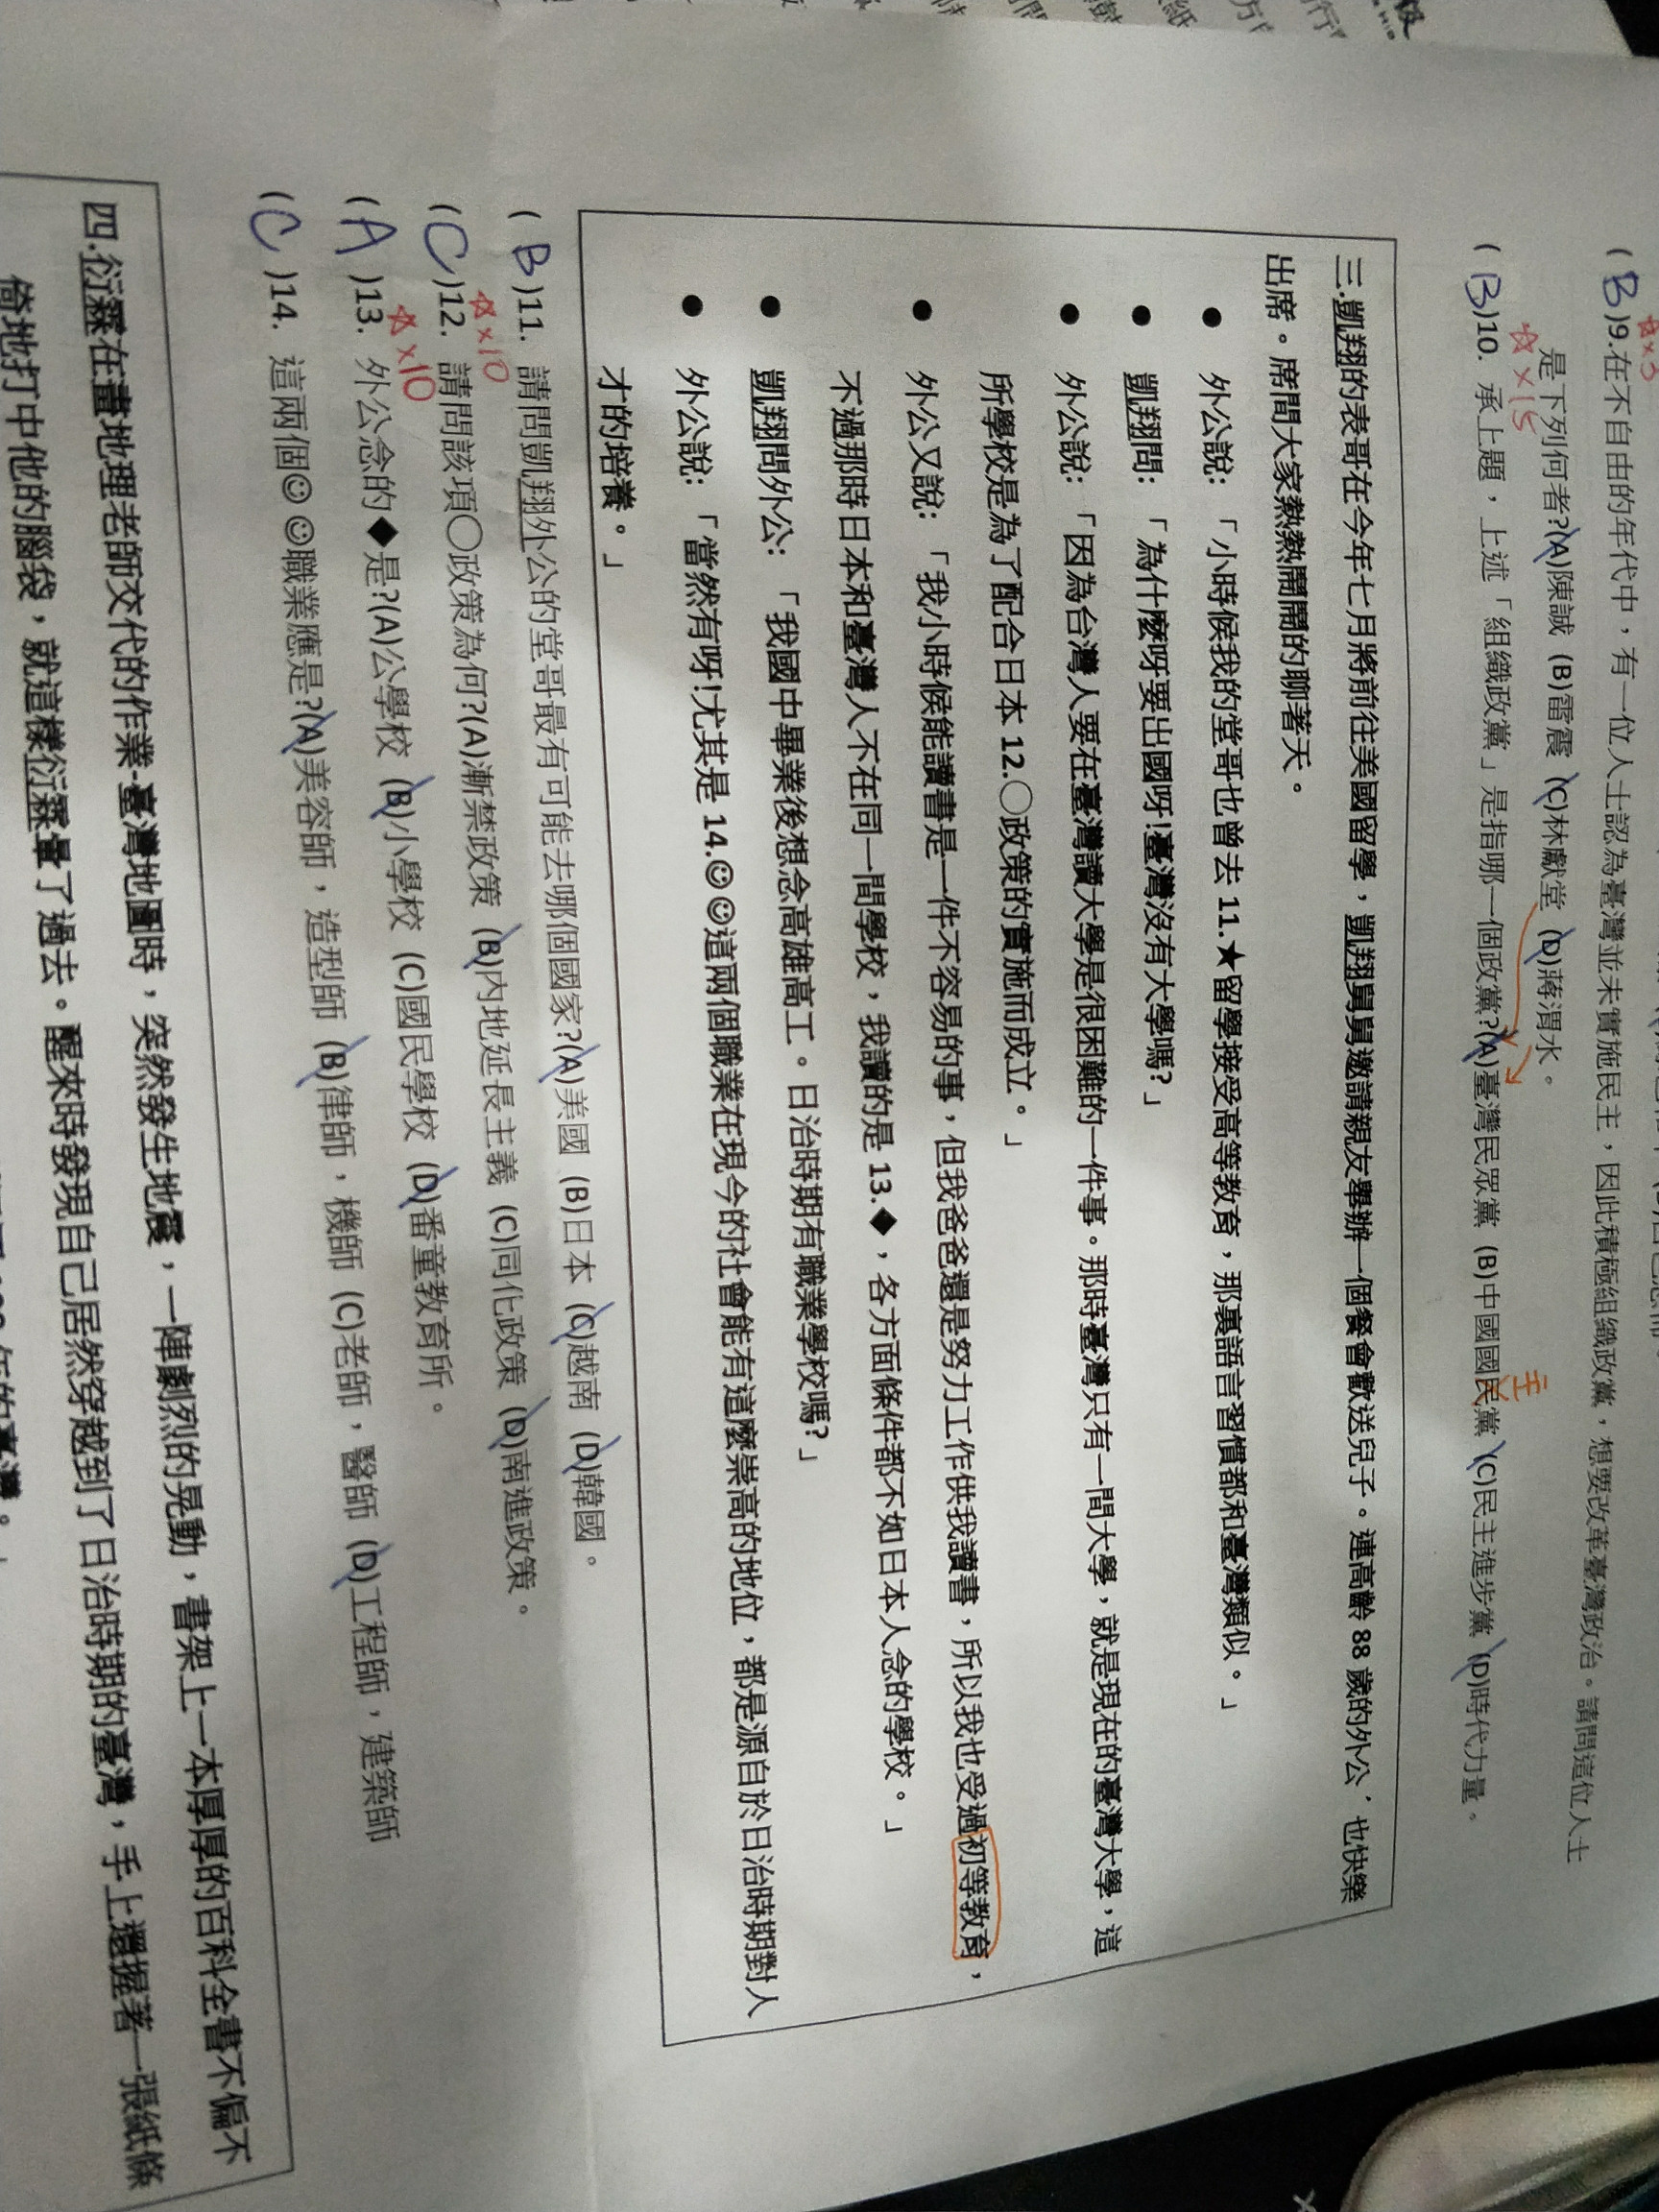 ☆×3
(B)9.在不自由的年代中，有一位人士認為臺灣並未實施民主，因此積極組織政黨，想要改革臺灣政治。請問這位人士
是下列何者?(A)陳誠 (B)雷震 (C)林獻堂 (D)蔣渭水。
☆×15
(B)10. 承上題，上述「組織政黨」是指哪一個政黨?(A)臺灣民眾黨 (B)中國國民黨 (C)民主進步黨 (D)時代力量。
主
三.凱翔的表哥在今年七月將前往美國留學，凱翔舅舅邀請親友舉辦一個餐會歡送兒子。連高齡 88 歲的外公，也快樂
出席。席間大家熱熱鬧鬧的聊著天。
● 外公說:「小時候我的堂哥也曾去 11.★留學接受高等教育，那裏語言習慣都和臺灣類似。」
● 凱翔問:「為什麼呀要出國呀!臺灣沒有大學嗎?」
● 外公說:「因為台灣人要在臺灣讀大學是很困難的一件事。那時臺灣只有一間大學，就是現在的臺灣大學，這
所學校是為了配合日本 12.○政策的實施而成立。」
● 外公又說:「我小時候能讀書是一件不容易的事，但我爸爸還是努力工作供我讀書，所以我也受過初等教育，
不過那時日本和臺灣人不在同一間學校，我讀的是 13.◆，各方面條件都不如日本人念的學校。」
● 凱翔問外公:「我國中畢業後想念高雄高工。日治時期有職業學校嗎?」
● 外公說:「當然有呀!尤其是 14.☺☺這兩個職業在現今的社會能有這麼崇高的地位，都是源自於日治時期對人
才的培養。」
(B)11. 請問凱翔外公的堂哥最有可能去哪個國家?(A)美國 (B)日本 (C)越南 (D)韓國。
☆×10
(C)12. 請問該項○政策為何?(A)漸禁政策 (B)內地延長主義 (C)同化政策 (D)南進政策。
☆×10
(A)13. 外公念的◆是?(A)公學校 (B)小學校 (C)國民學校 (D)番童教育所。
(C)14. 這兩個☺☺職業應是?(A)美容師，造型師 (B)律師，機師 (C)老師，醫師 (D)工程師，建築師
四.衍霖在畫地理老師交代的作業-臺灣地圖時，突然發生地震，一陣劇烈的晃動，書架上一本厚厚的百科全書不偏不
倚地打中他的腦袋，就這樣衍霖暈了過去。醒來時發現自己居然穿越到了日治時期的臺灣，手上還握著一張紙條